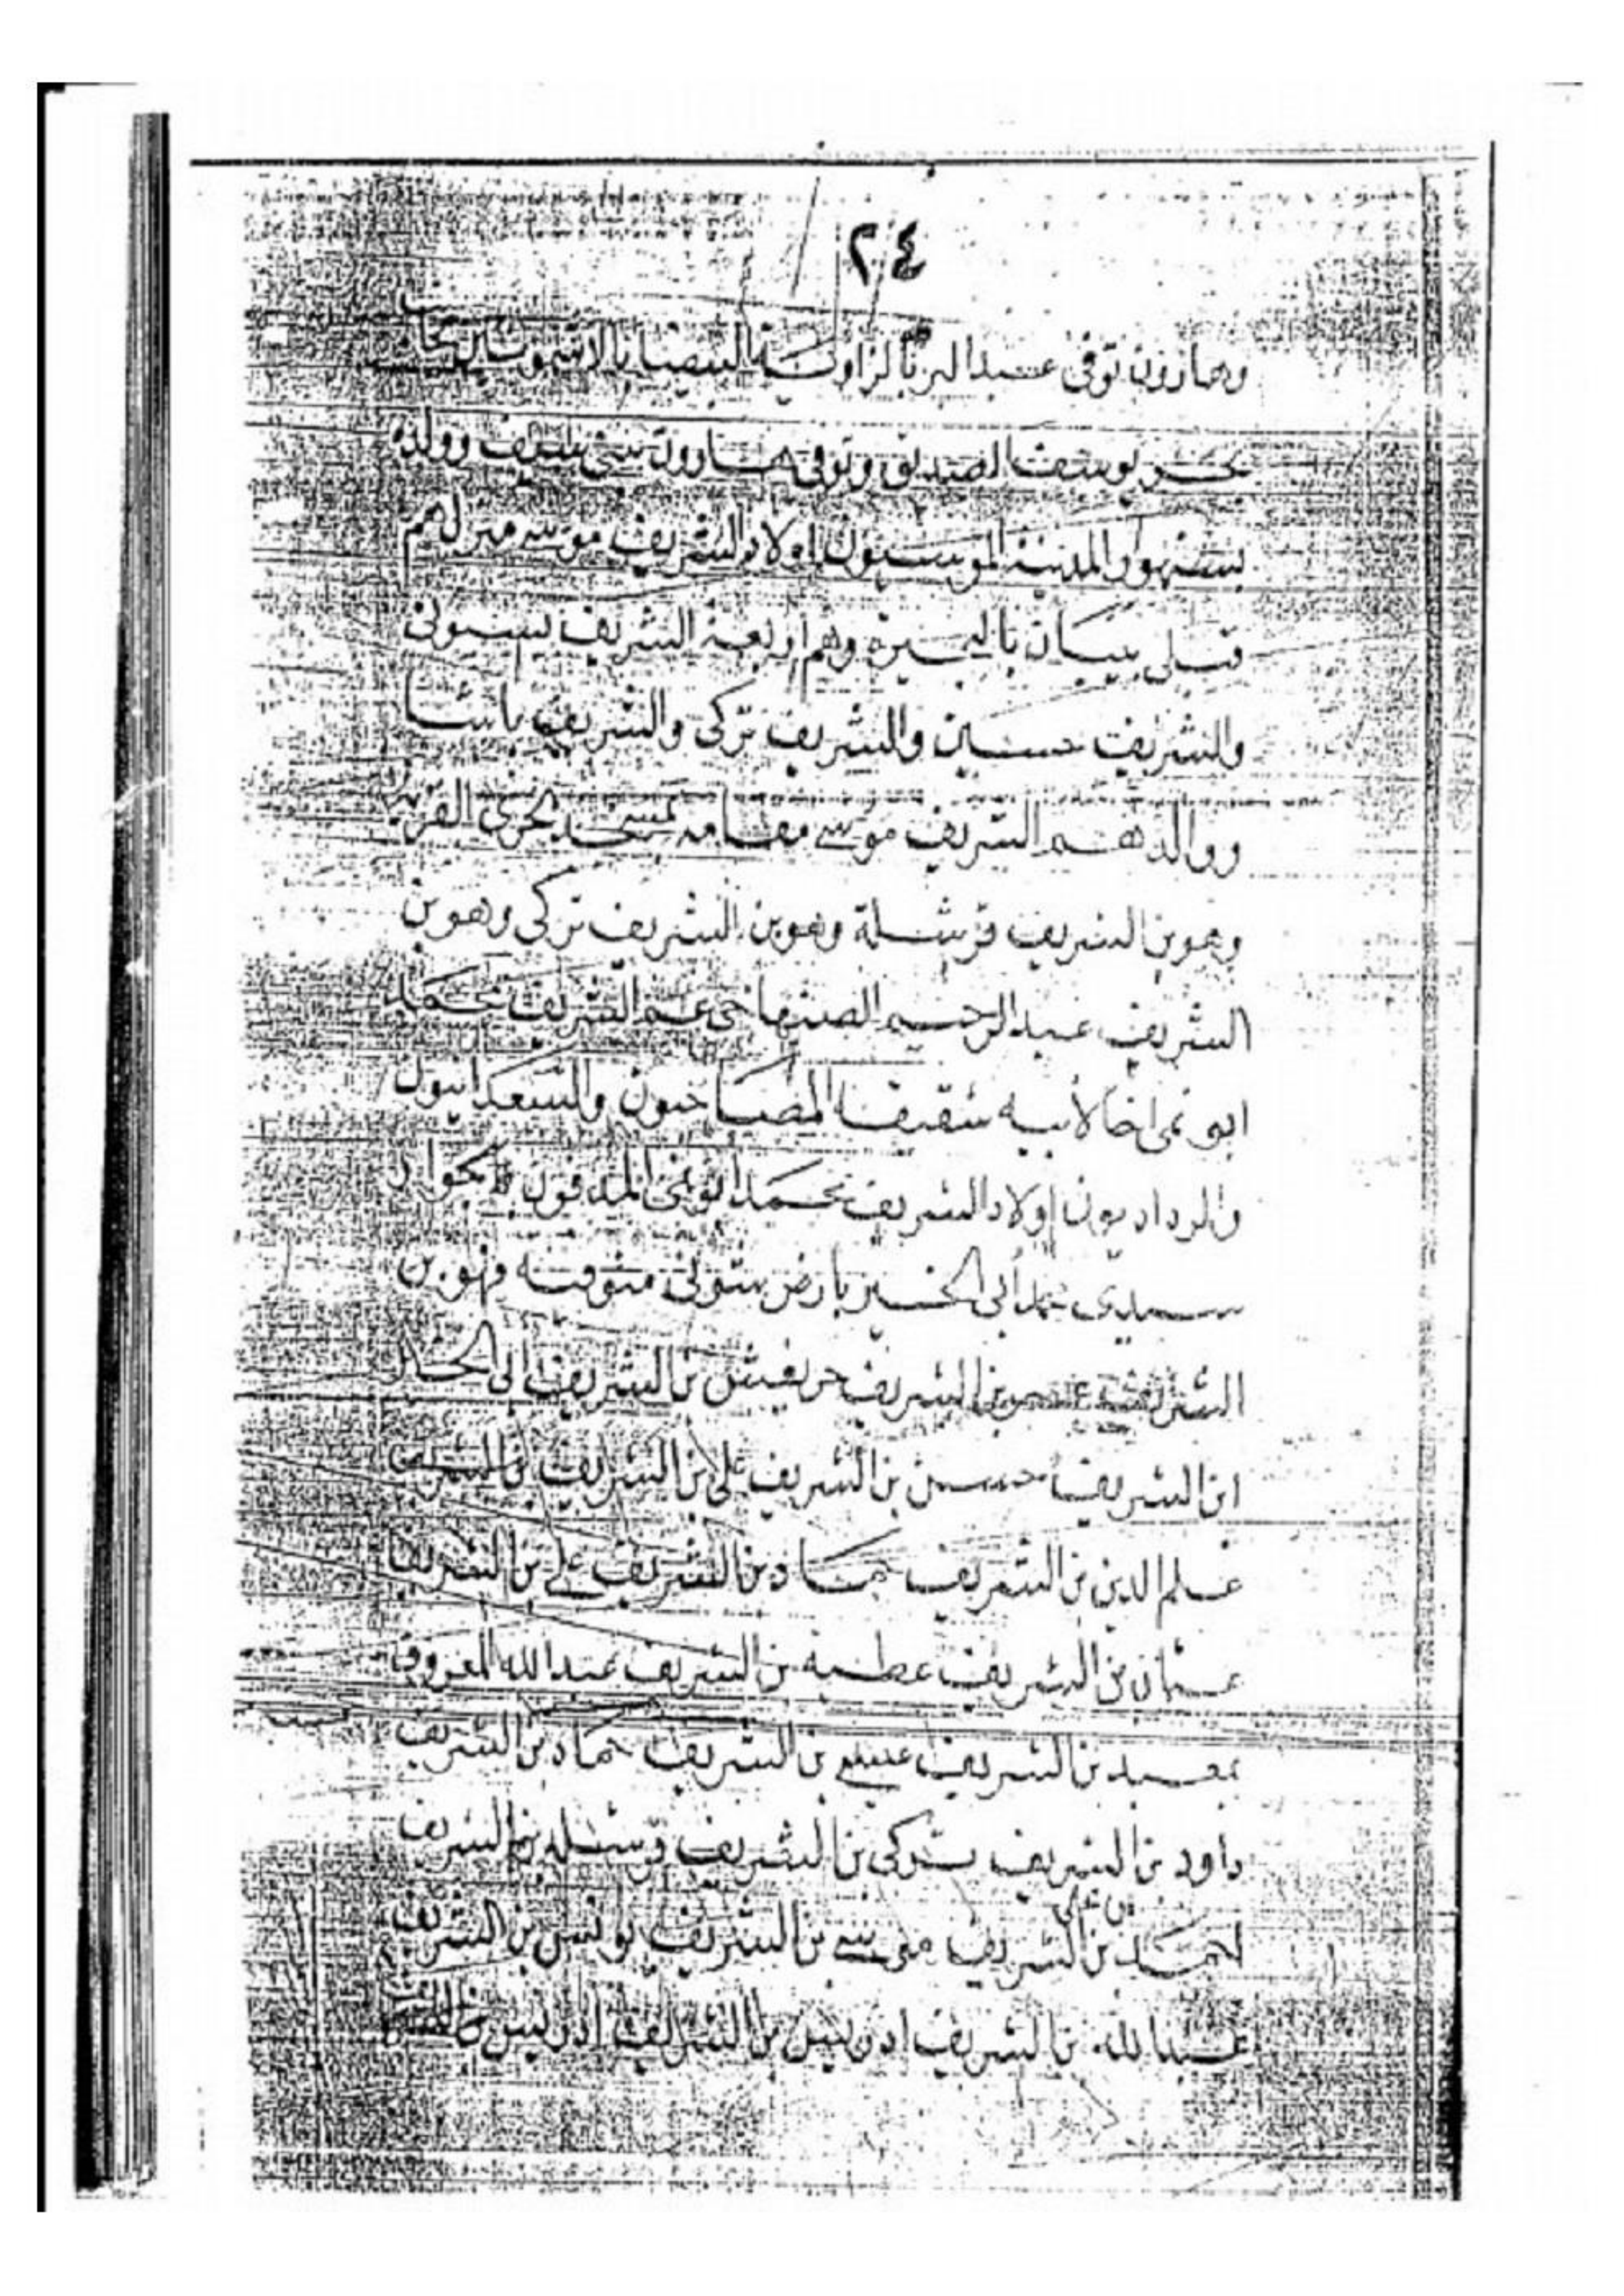 ٢٤
وهارون توفى عبد البر بالزاوية البيضا بالاشمونين بجانب
بحر يوسف الصديق وتوفى هارون وولده
بسنهور المدينة الموسيون اولاد الشريف موسى منزلهم
قبلي بيبان بالبحيرة وهم اربعة الشريف بسيونى
والشريف حسين والشريف تركى والشريف باشا
ووالدهم الشريف موسى مقامه بمسجد بحرى القرية
وهو بن الشريف قرشلة وهو بن الشريف تركى وهو بن
الشريف عبد الرحيم الصنهاجى عم الشريف محمد
ابو نمى اخا لأبيه شقيقا المصباحيون والسعدانيون
والرداديون اولاد الشريف محمد ابو نمى المدفون بجوار
سيدى محمد أبى الخير بارض منوفية فهو بن
الشريف بن الشريف حريفيش بن الشريف ابى
ابن الشريف حسين بن الشريف على بن الشريف بن الشريف
علم الدين بن الشريف حماد بن الشريف على بن الشريف
عثمان بن الشريف عطية بن الشريف عبد الله المعروف
بمعبد بن الشريف عيسى بن الشريف حماد بن الشريف
داود بن الشريف تركى بن الشريف قرشلة بن الشريف
احمد بن على بن الشريف موسى بن الشريف يونس بن الشريف
عبد الله بن الشريف ادريس بن الشريف ادريس بن